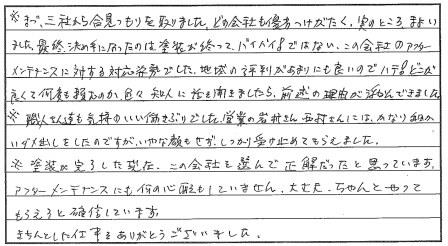 ※まず、三社から合見つもりを取りました。どの会社も優劣つけがたく、実のところ、まよい
ました。最終決め手になったのは塗装が終って、バイバイ!ではない、この会社のアフター
メンテナンスに対する対応姿勢でした。地域の評判があまりにも良いのでハテ?どこが
良くて何度も頼むのか、色々知人に話を聞きましたら、前述の理由が浮んできました。
※職人さん達も気持のいい働きぶりでした。営業の岩村さん西村さんには、かなり細か
いダメ出しをしたのですが、いやな顔もせず、しっかり受け止めてもらえました。
※塗装が完了した現在、この会社を選んで正解だったと思っています。
アフターメンテナンスにも何の心配もしていません。大丈夫、ちゃんとやって
もらえると確信しています。
きちんとした仕事をありがとうございました。